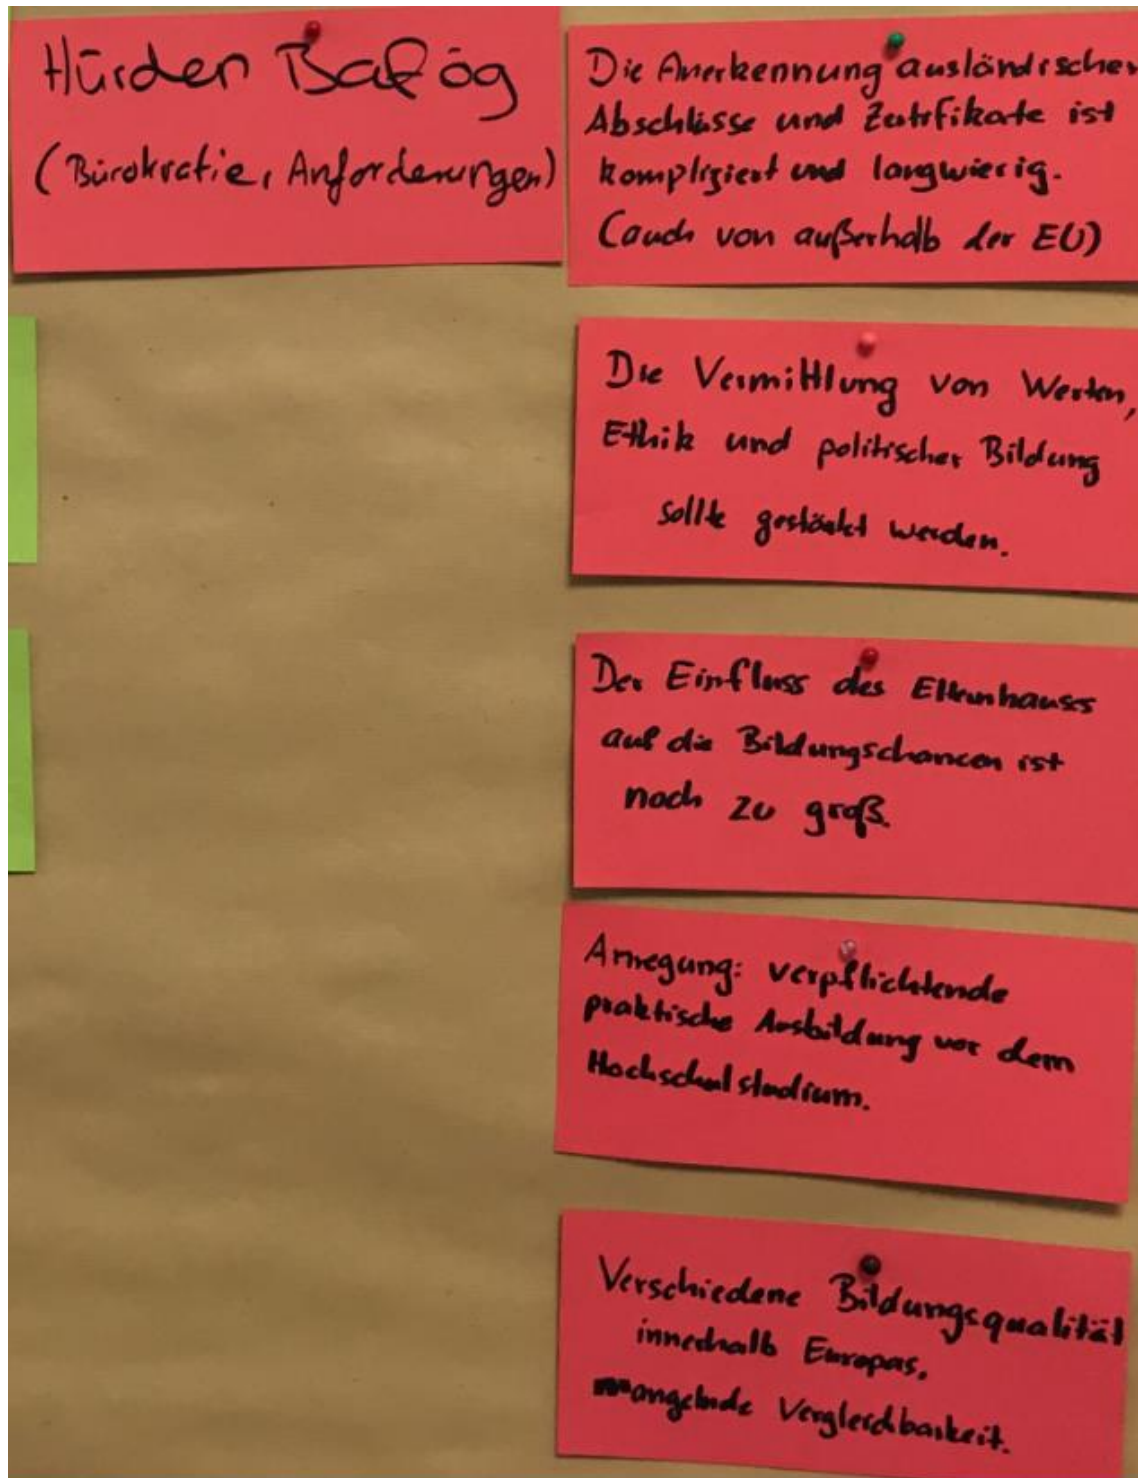 Hürden Bafög
(Bürokratie, Anforderungen)
Die Anerkennung ausländischer
Abschlüsse und Zertifikate ist
kompliziert und langwierig.
(auch von außerhalb der EU)
Die Vermittlung von Werten,
Ethik und politischer Bildung
sollte gestärkt werden.
Der Einfluss des Elternhauses
auf die Bildungschancen ist
noch zu groß.
Anregung: verpflichtende
praktische Ausbildung vor dem
Hochschulstudium.
Verschiedene Bildungsqualität
innerhalb Europas,
mangelnde Vergleichbarkeit.